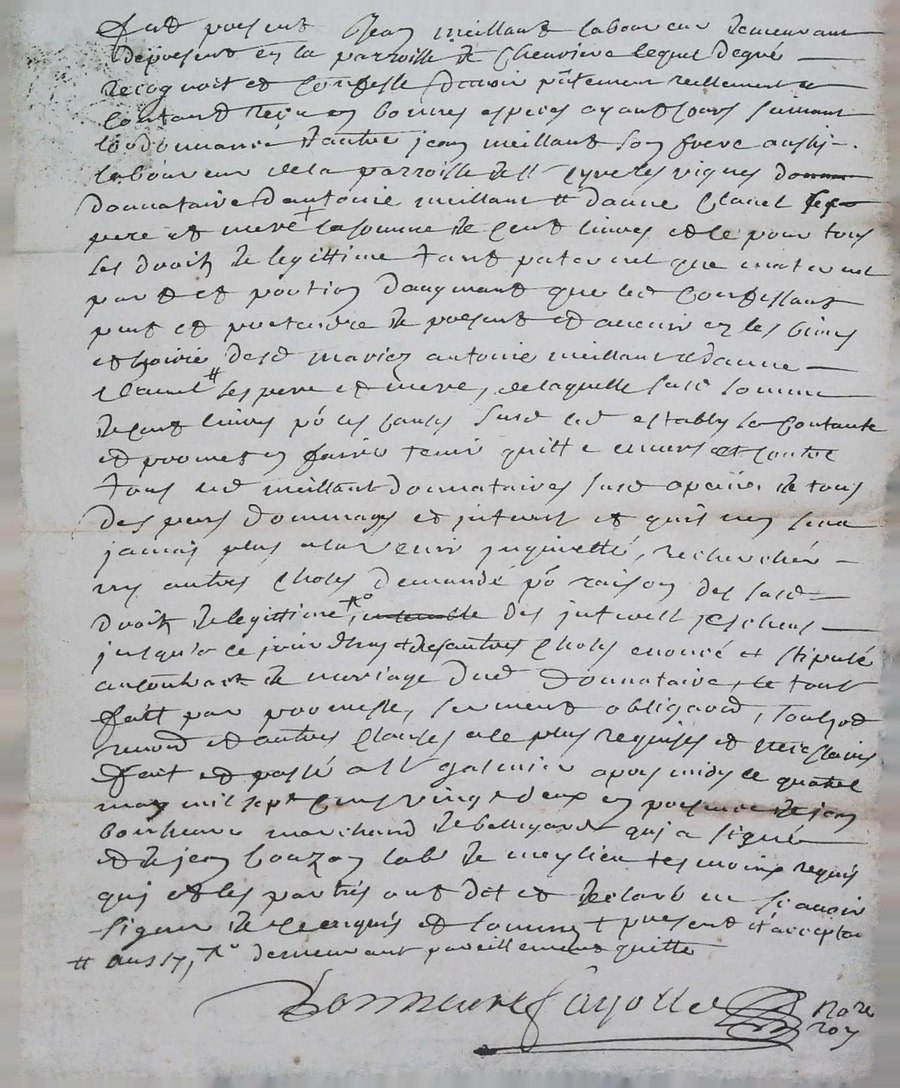 fut present Jean meillant laboureur demeurant
de present en la parroisse de Chevriere lequel de gré
recognoit et confesse davoir pñtement reellement et
contant receu en bonnes especes ayant cours suivant
lordonnance dautre jean meillant son frere aussi
laboureur de la parroisse de St Cyre les vignes
donnataire dantoine meillant # danne Clavel ses
pere et mere + la somme de cent livres et ce pour tous
les droits de legittime tant paternel que maternel
part et portion daugmant que led Confessant
peut et pretendre de present et avenir ez les biens
et hoirie desd mariez antoine meillant et danne
Clavel # ses pere et mere, de laquelle susd somme
de cent livres po les causes susd led estably se contante
et promet en faire tenir quitte envers et contre
tous led meillant donnataires susd apeine de tous
despens dommages et interest et quil nen sera
jamais plus a ladvenir inquietté, recherché
ny autres choses demandé po raison des susd
droits de legittime, ro des interest escheus
jusqua ce jourdhuy et des autres choses enoncé et stipulé
au contract de mariage dud donnataire, le tout
fait par promesse, serment obligaõn, soubzõn
renõn et autres clauses a ce plus requises et necessaires
fait et passé a St galmier apres midy le quatre
may mil sept cens vingt deux en presence de jean
bonheure marchand de bellegarde qui a signé
et de jean bouzon labr de meylieu tesmoins requis
qui et les parties ont dit et declaré ne scavoir
signer de ce enquis et sommé + present et acceptan
# aussy, ro demeurant pareillement quitte
Bonheure fayolle Nore
roy